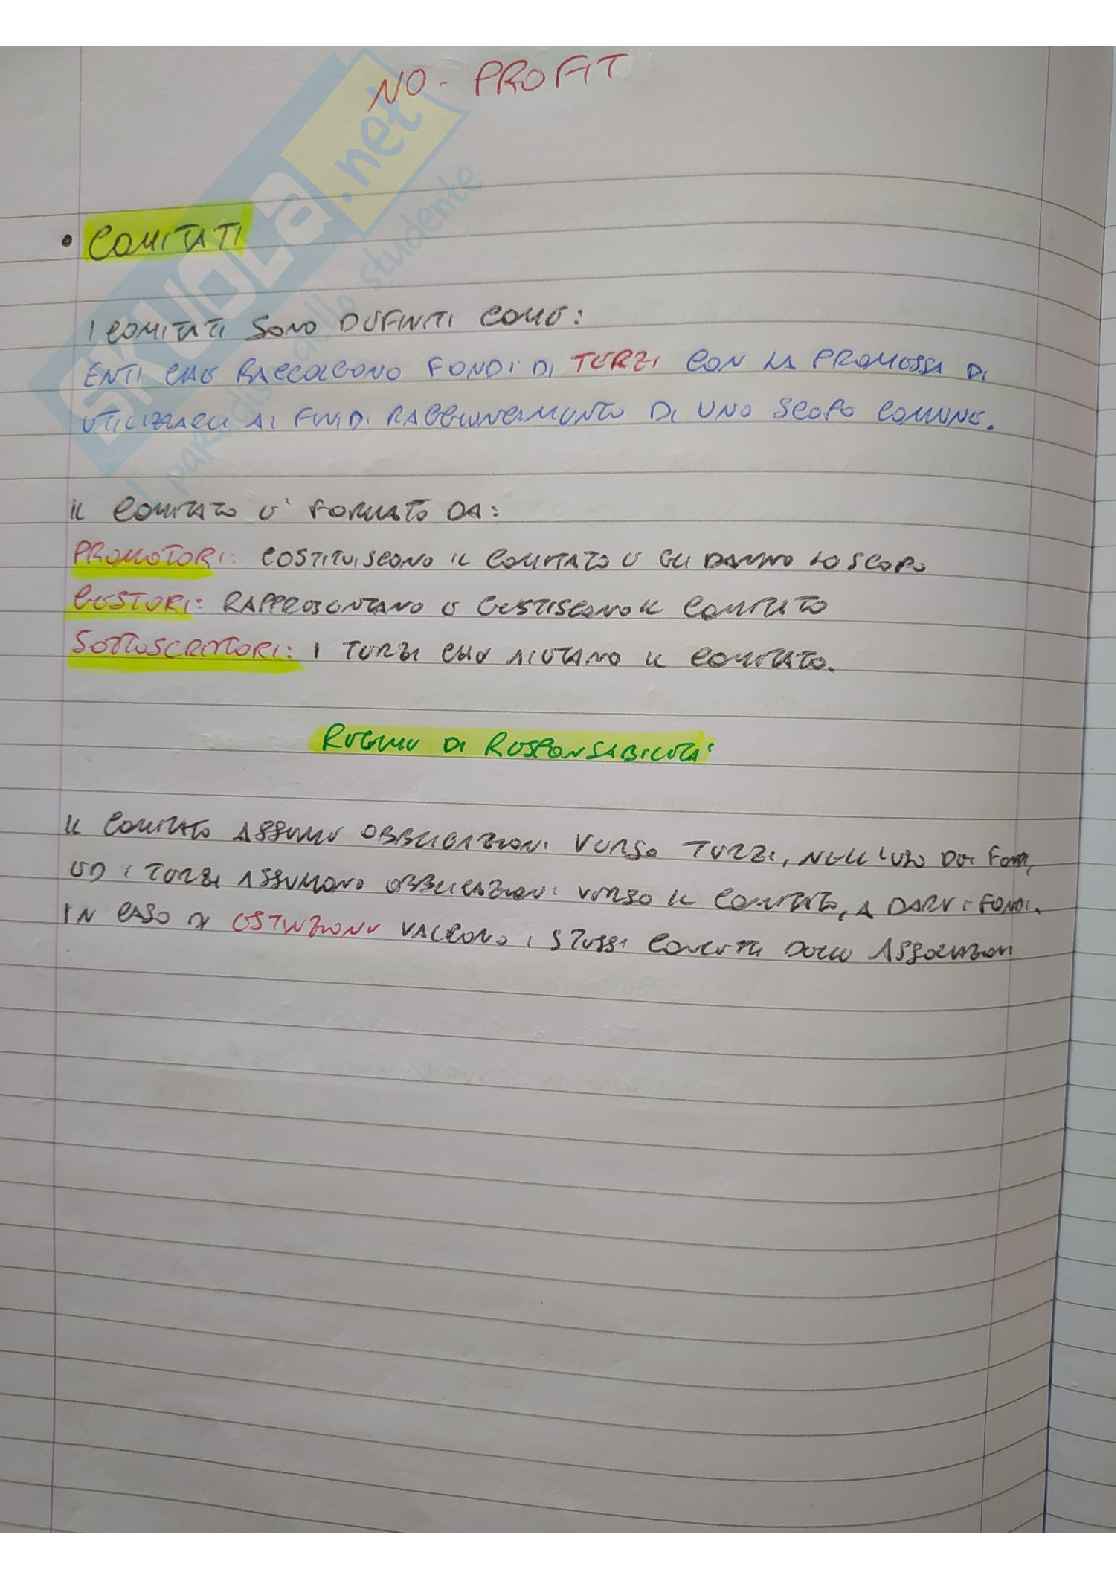 NO - PROFIT
• COMITATI
I COMITATI SONO DEFINITI COME:
ENTI CHE RACCOLGONO FONDI DI TERZI CON LA PROMESSA DI
UTILIZZARLI AI FINI DI RAGGIUNGIMENTO DI UNO SCOPO COMUNE.
IL COMITATO E' FORMATO DA:
PROMOTORI: COSTITUISCONO IL COMITATO E GLI DANNO LO SCOPO
GESTORI: RAPPRESENTANO E GESTISCONO IL COMITATO
SOTTOSCRITTORI: I TERZI CHE AIUTANO IL COMITATO.
REGIME DI RESPONSABILITA'
IL COMITATO ASSUME OBBLIGAZIONI VERSO TERZI, NELL'USO DEI FONDI,
ED I TERZI ASSUMONO OBBLIGAZIONI VERSO IL COMITATO, A DARE I FONDI.
IN CASO DI ESTINZIONE VALGONO I STESSI CONCETTI DELLE ASSOCIAZIONI
SKUOLA.net
il paradiso dello studente